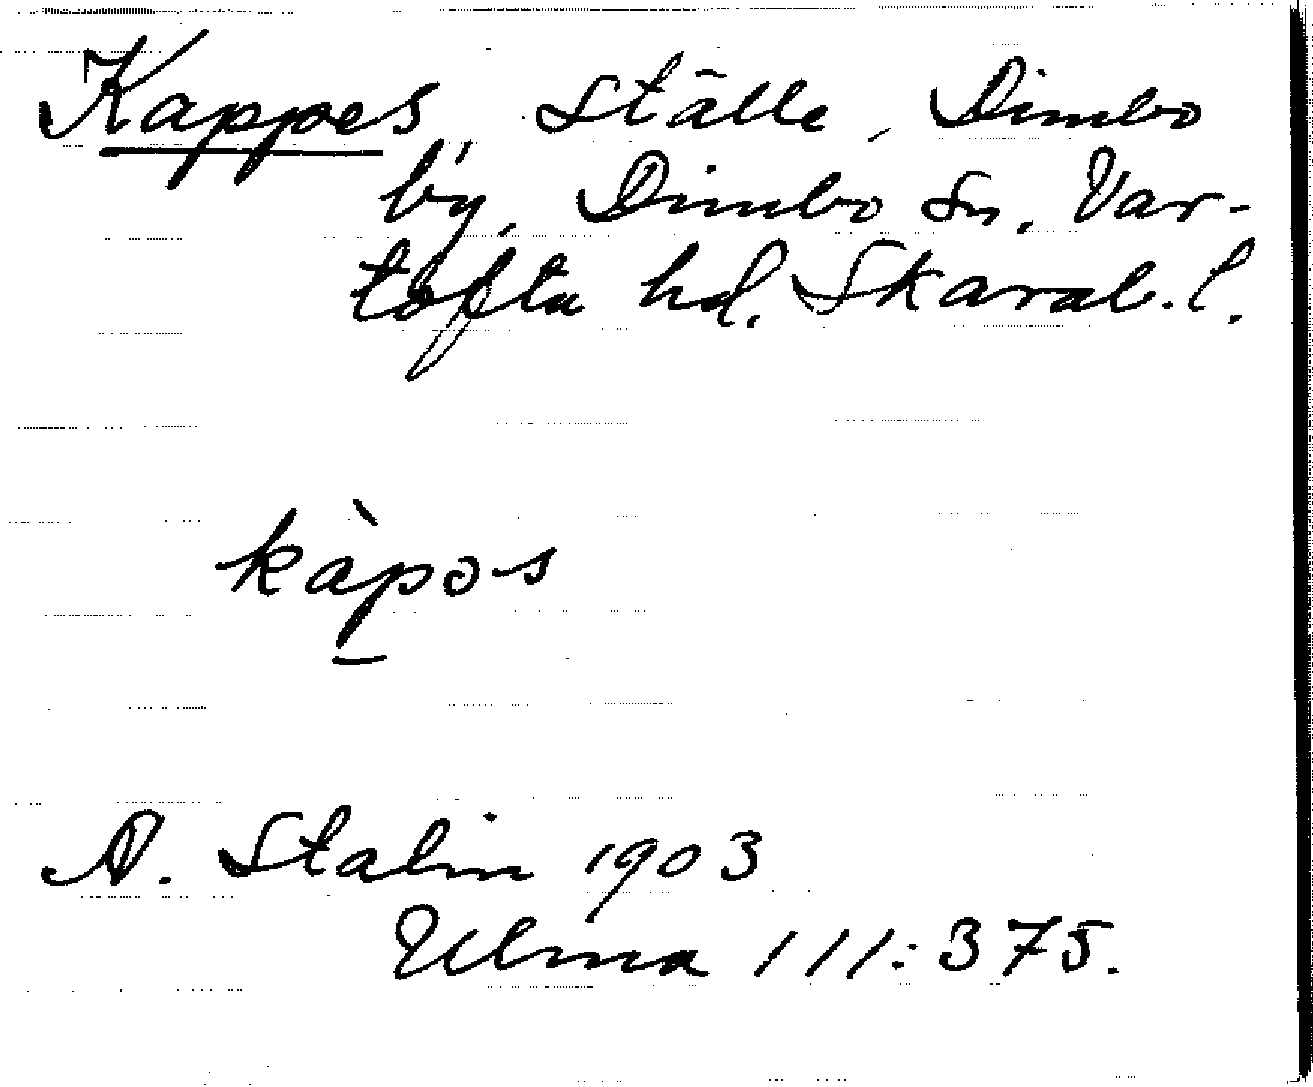 Kappes, Ställe, Dimbo
by, Dimbo sn, Var-
tofta hd. Skarab. l.
kàp̲os
A. Stalin 1903
Ulma 111:375.